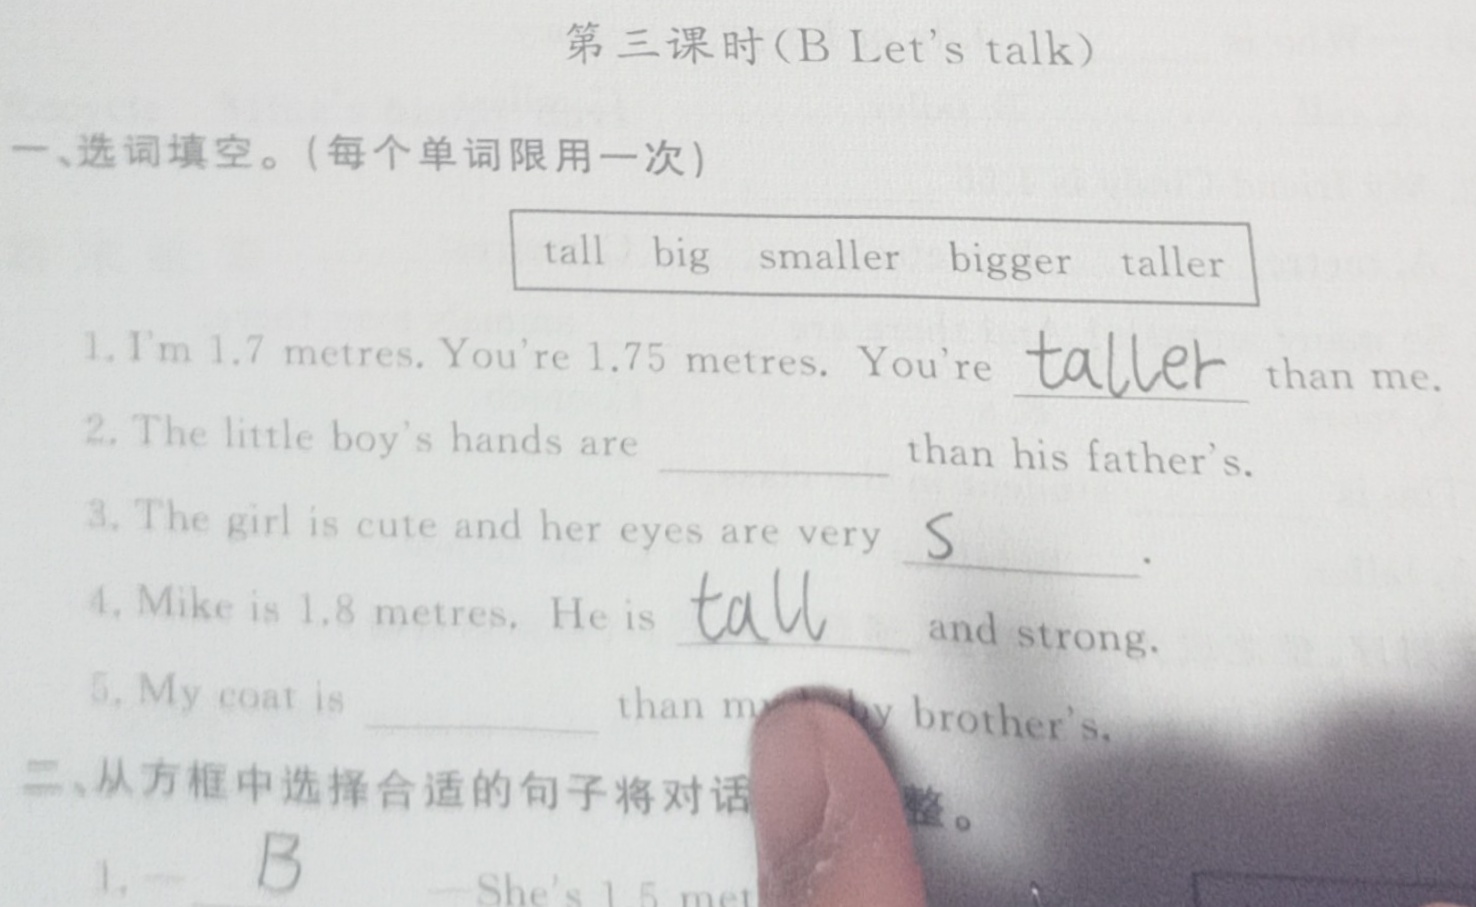 第三课时(B Let's talk)
一、选词填空。(每个单词限用一次)
tall big smaller bigger taller
1. I'm 1.7 metres. You're 1.75 metres. You're taller than me.
2. The little boy's hands are ________ than his father's.
3. The girl is cute and her eyes are very s ________.
4. Mike is 1.8 metres. He is tall and strong.
5. My coat is ________ than my by brother's.
二、从方框中选择合适的句子将对话 整。
1. — B —She's 1.5 met